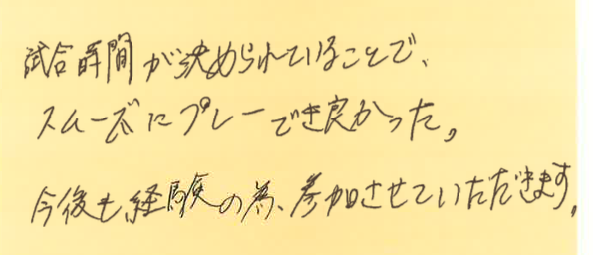 試合時間が決められていることで、
スムーズにプレーでき良かった。
今後も経験の為、参加させていただきます。